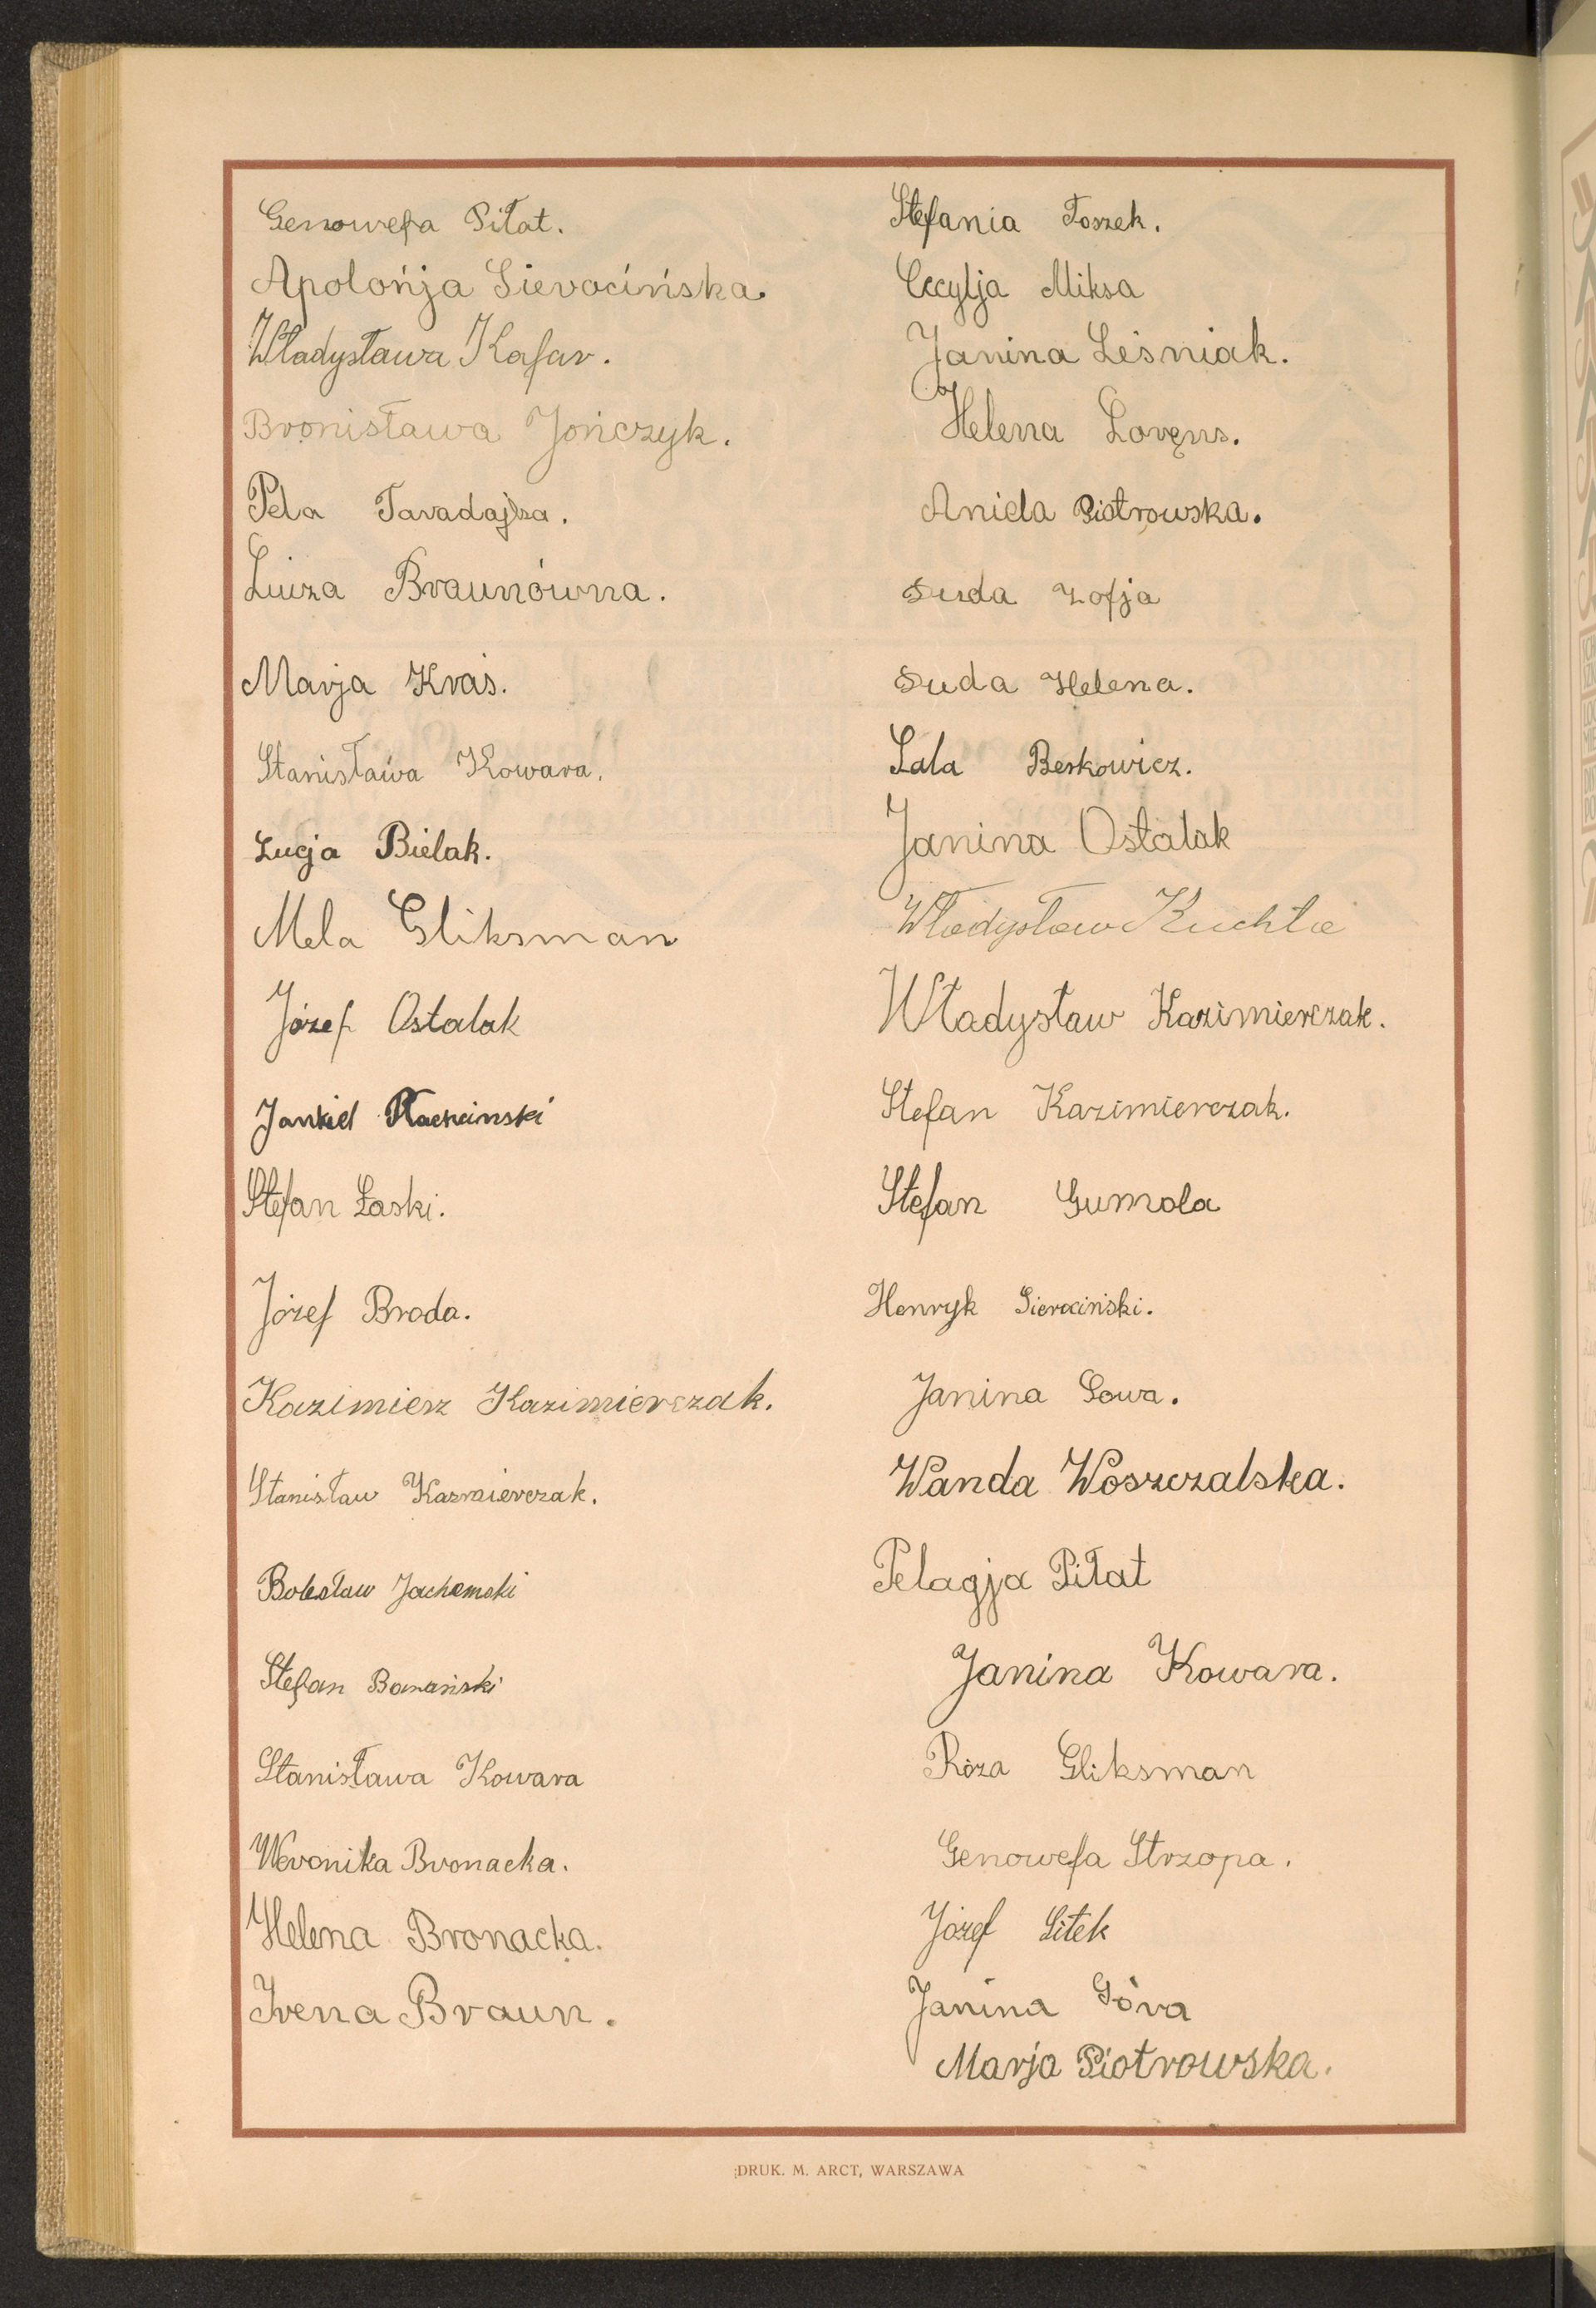 Genowefa Piłat.
Apolońja Sierocińska.
Władysława Kafar.
Bronisława Jończyk.
Pela Taradajka.
Luiza Braunówna.
Marja Kraś.
Stanisława Kowara.
Łucja Bielak.
Mela Gliksman
Józef Ostalak
Jankiel
Stefan Łaski.
Józef Broda.
Kazimierz Kazimierczak.
Stanisław Kazmierczak.
Bolesław Jachemski
Stefan Banański
Stanisława Kowara
Weronika Bronacka.
Helena Bronacka.
Irena Braun.
Stefania Toszek.
Cecylja Miksa
Janina Leśniak.
Helena Lorens.
Aniela Piotrowska.
Suda Zofja
Suda Helena.
Lala Berkowicz.
Janina Ostalak
Władysław Kuchta
Władysław Kazimierczak.
Stefan Kazimierczak.
Stefan Gumola
Henryk Sierociński.
Janina Sowa.
Wanda Woszczalska.
Pelagja Piłat
Janina Kowara.
Róża Gliksman
Genowefa Strzopa.
Józef Sitek
Janina Góra
Marja Piotrowska.
DRUK. M. ARCT, WARSZAWA